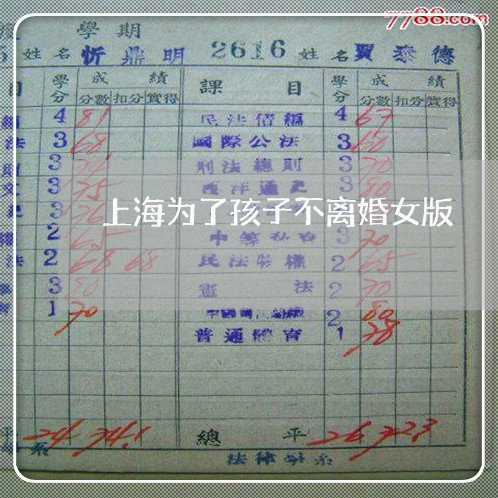 7788.com
學期
姓名 忻鼎明 2616 姓名 賈泰德
目 學分 成績 課目 學分 成績
分數 扣分 實得 分數 扣分 實得
4 81 民法債編 4 67
法 3 68 國際公法 3 60
3 刑法總則 3 70
3 75 西洋通史 3 80
上海为了孩子不离婚女版
2 65 中等 3 70
法 2 68 68 民法物權 2 65
3 80 憲法 2 70
1 70 2 80
普通體育 1 78
平 24 74.1 總平 26 72.3
系 法律學系